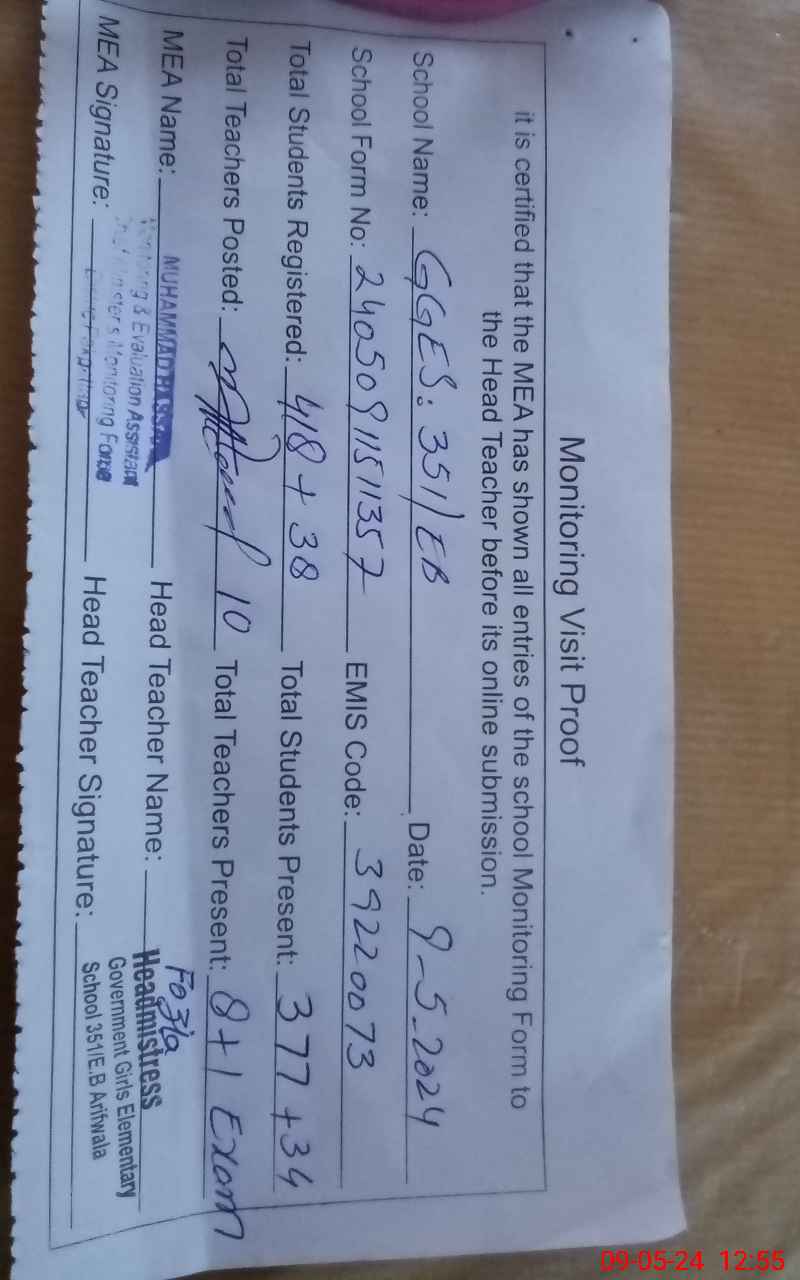 Monitoring Visit Proof
it is certified that the MEA has shown all entries of the school Monitoring Form to
the Head Teacher before its online submission.
School Name: GGES: 351/EB Date: 9-5-2024
School Form No: 2405091151357 EMIS Code: 39220073
Total Students Registered: 418 + 38 Total Students Present: 377 + 34
Total Teachers Posted: 10 Total Teachers Present: 8 + 1 Exam
MEA Name: MUHAMMAD Head Teacher Name: Fozia
Monitoring & Evaluation Assistant
Headmistress
Monitoring Force
Government Girls Elementary
School 351/E.B Arifwala
MEA Signature: Head Teacher Signature:
09-05-24 12:55